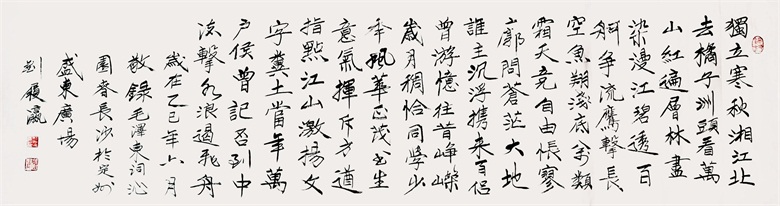 獨立寒秋湘江北
去橘子洲頭看萬
山紅遍層林盡
染漫江碧透百
舸争流鷹擊長
空魚翔淺底萬類
霜天竞自由悵寥
廓問蒼茫大地
誰主沉浮携來百侣
曾游憶往昔崢嶸
歲月稠恰同學少
年風華正茂书生
意氣揮斥方遒
指點江山激揚文
字糞土當年萬
户侯曾記否到中
流擊水浪遏飛舟
歲在乙巳年六月
敬錄毛澤東詞沁
園春長沙於定州
盛東廣場